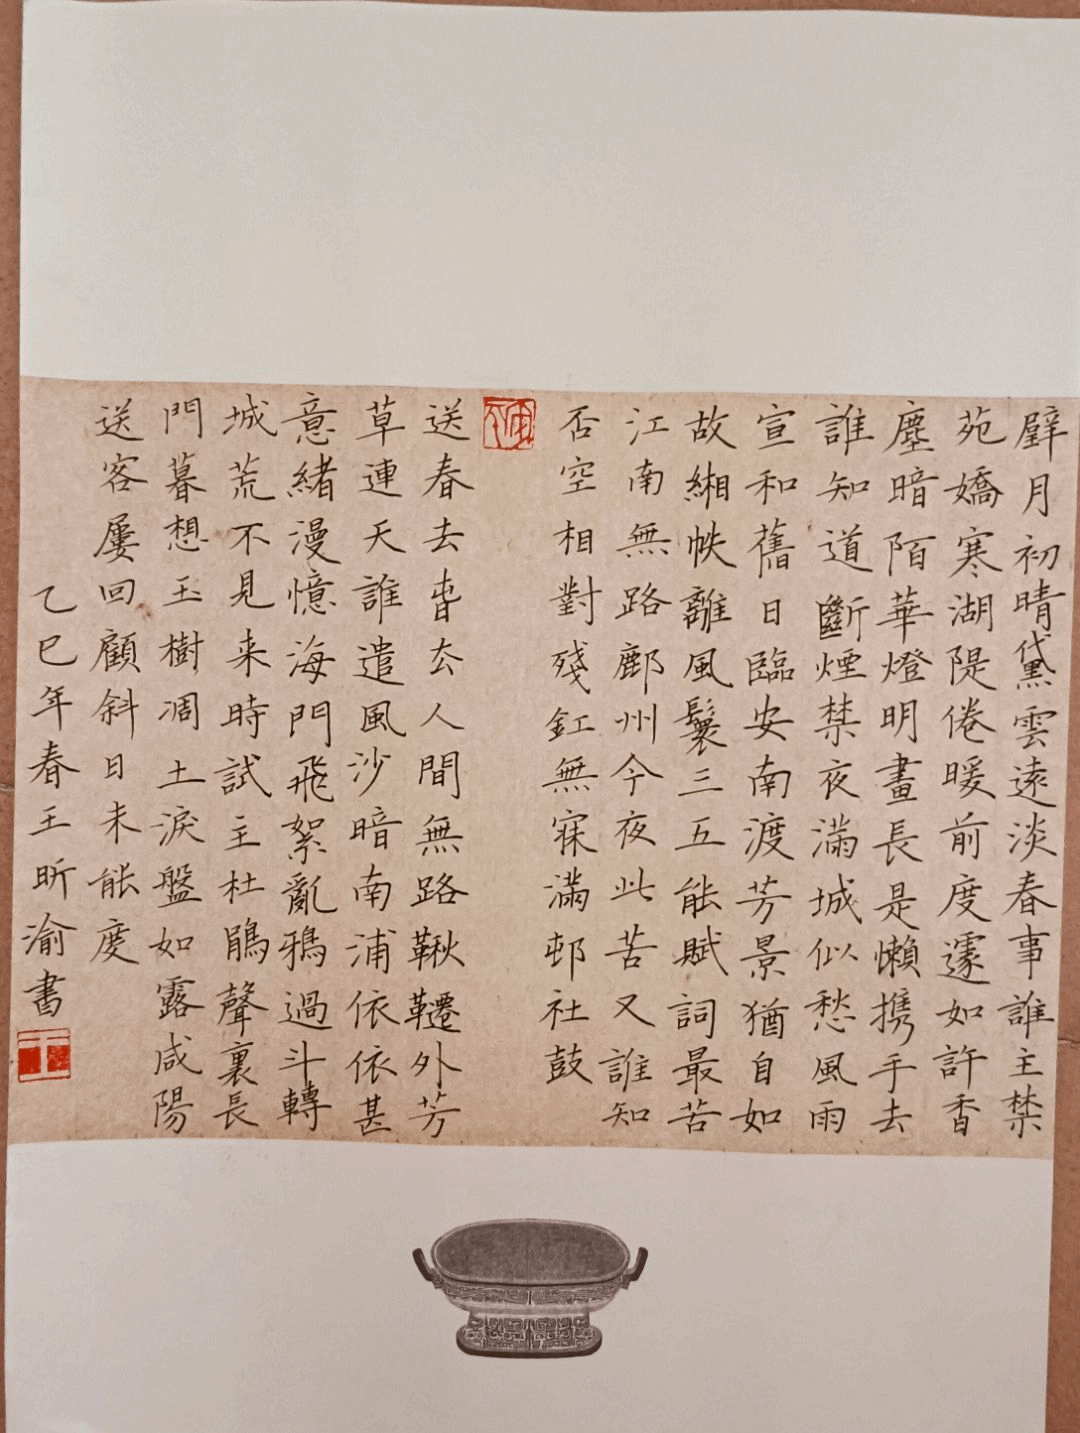 璧月初晴黛雲遠淡春事誰主禁
苑嬌寒湖隄倦暖前度遽如許香
塵暗陌華燈明晝長是懶携手去
誰知道斷煙禁夜滿城似愁風雨
宣和舊日臨安南渡芳景猶自如
故緗帙離風鬟三五能賦詞最苦
江南無路鄜州今夜此苦又誰知
否空相對殘釭無寐滿邨社鼓
送春去春去人間無路鞦韆外芳
草連天誰遣風沙暗南浦依依甚
意緒漫憶海門飛絮亂鴉過斗轉
城荒不見来時試主杜鵑聲裏長
門暮想玉樹凋土淚盤如露咸陽
送客屢回顧斜日未能度
乙巳年春王昕渝書